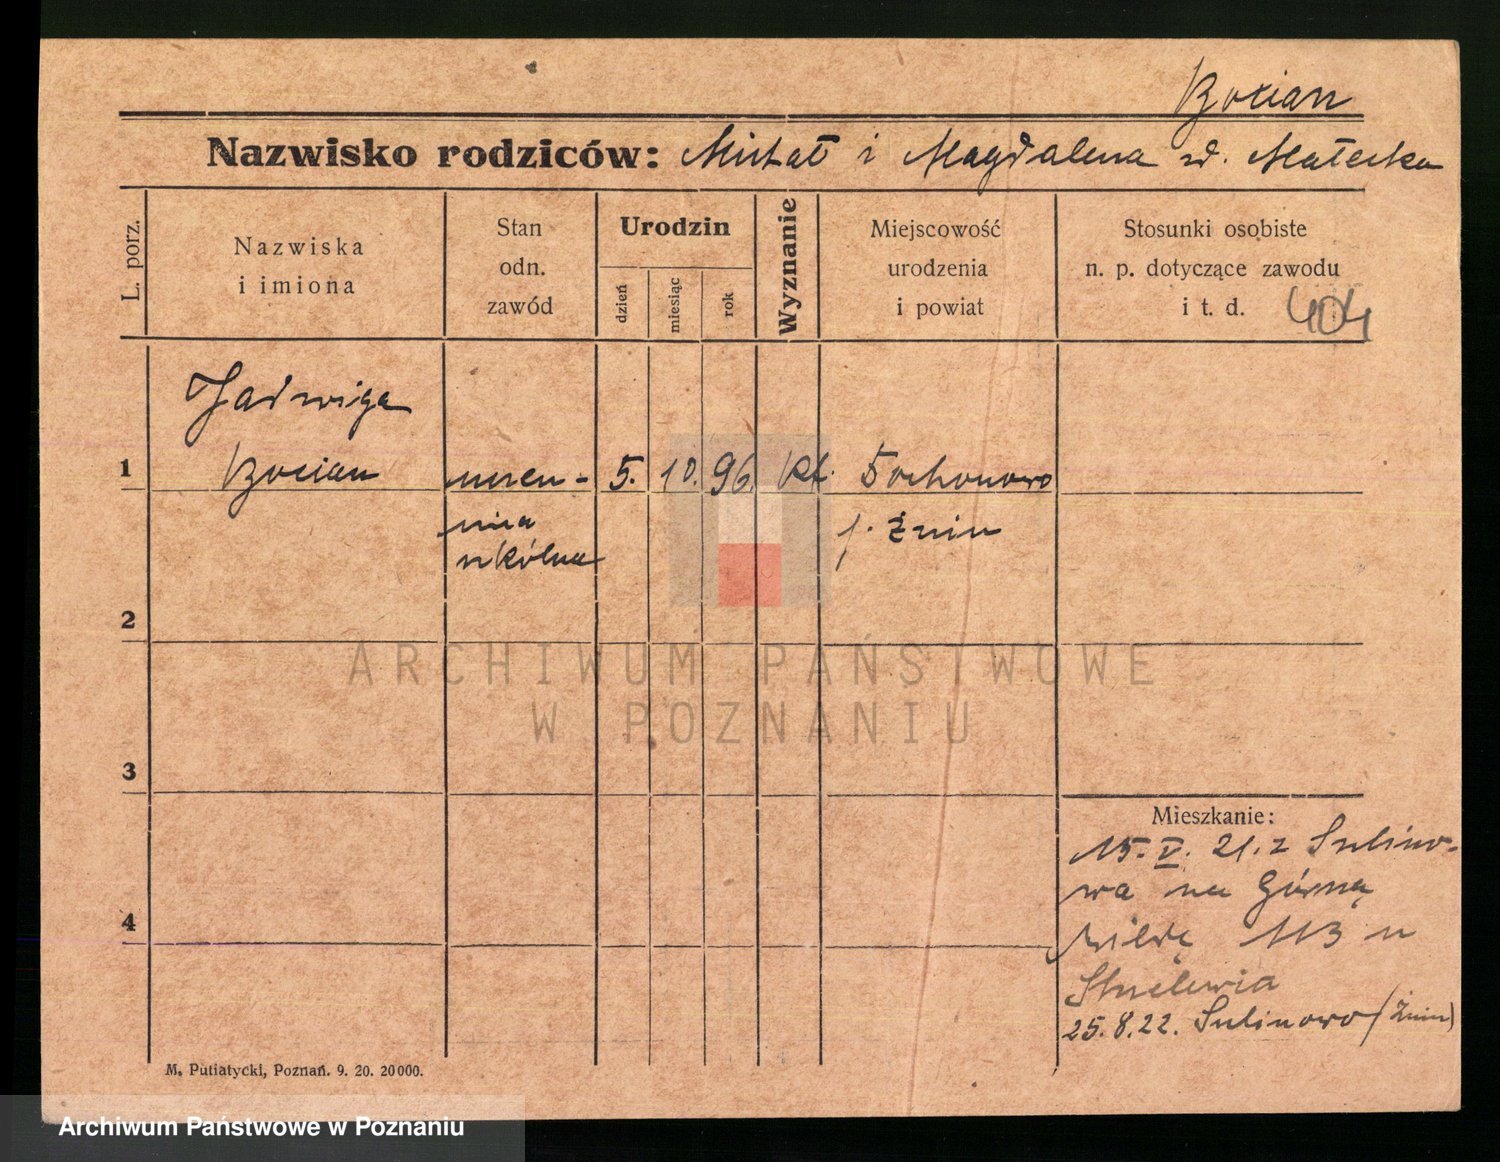 Bocian
Nazwisko rodziców: Michał i Magdalena zd. Małecka
L. porz.
Nazwiska
i imiona
Stan
odn.
zawód
Urodzin
dzień
miesiąc
rok
Wyznanie
Miejscowość
urodzenia
i powiat
Stosunki osobiste
n. p. dotyczące zawodu
i t. d. 404
Jadwiga
1 Bocian uczen- 5. 10. 96. kt. Sochonowo
nica p. Żnin
szkólna
2
ARCHIWUM PAŃSTWOWE
W POZNANIU
3
Mieszkanie:
15. V. 21. z Sulino-
wa na Górną
4 Wildę 113 u
25.8.22. Sulinowo (Żnin)
M. Putiatycki, Poznań. 9. 20. 20000.
Archiwum Państwowe w Poznaniu